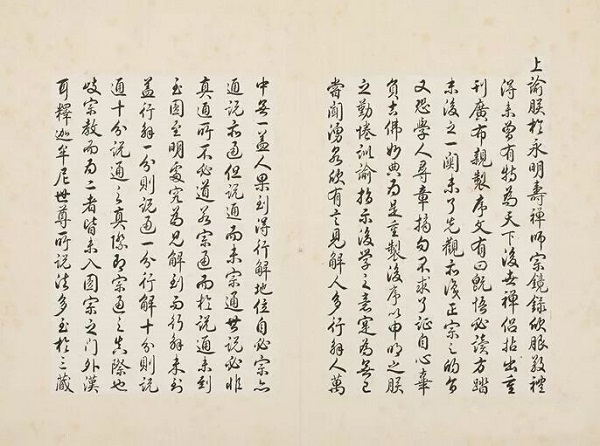 上諭朕於永明壽禪師宗鏡錄欣服敬禮
得未曾有特為天下後世禪侶拈出重
刊廣布親製序文有曰既悟必讀方踏
末後之一關未了先觀亦正宗之的旨
又恐學人尋章摘句不求了證自心辜
負古佛妙典為是重製後序以申明之朕
之勤惓訓諭指示後學之意寔為無已
嘗聞湧泉欣有言見解人多行解人萬
中無一蓋人果到得行解地位自必宗亦
通說亦通但說通而未宗通其說必非
真通所不必道若宗通而於說通未到
至圓至明處究為見解到而行解未到
蓋行解一分則說通一分行解十分則說
通十分說通之真際即宗通之真際也
歧宗教而為二者皆未入圓宗之門外漢
耳釋迦牟尼世尊所說法多至於三藏